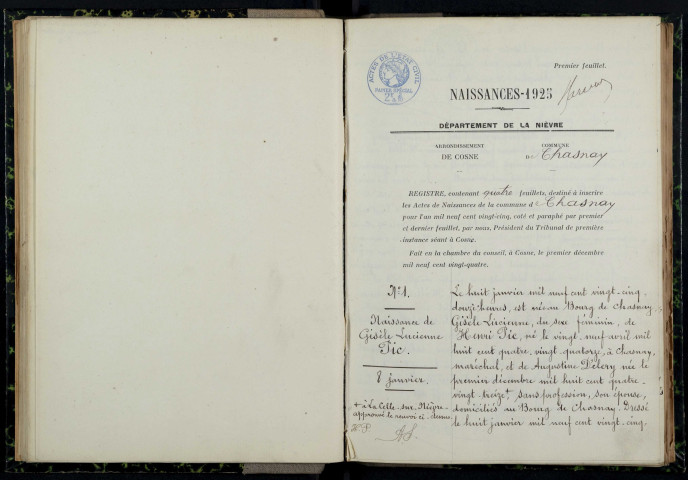 Premier feuillet.
ACTES DE L'ETAT CIVIL
PAPIER SPÉCIAL
NAISSANCES-1925
DÉPARTEMENT DE LA NIÈVRE
ARRONDISSEMENT
DE COSNE
COMMUNE
de Chasnay
REGISTRE, contenant quatre feuillets, destiné à inscrire
les Actes de Naissances de la commune de Chasnay
pour l'an mil neuf cent vingt-cinq, coté et paraphé par premier
et dernier feuillet, par nous, Président du Tribunal de première
instance séant à Cosne.
Fait en la chambre du conseil, à Cosne, le premier décembre
mil neuf cent vingt-quatre.
N° 1.
Naissance de
Gisèle Lucienne
Pic.
8 janvier.
+ à La Celle-sur-Nièvre
approuvé le renvoi ci-dessus
H P
AS
Le huit janvier mil neuf cent vingt-cinq,
douze heures, est née au Bourg de Chasnay
Gisèle Lucienne, du sexe féminin, de
Henri Pic, né le vingt neuf avril mil
huit cent quatre-vingt quatorze, à Chasnay,
maréchal, et de Augustine née le
premier décembre mil huit cent quatre-
vingt-treize+, sans profession, son épouse,
domiciliés au Bourg de Chasnay. Dressé
le huit janvier mil neuf cent vingt-cinq,